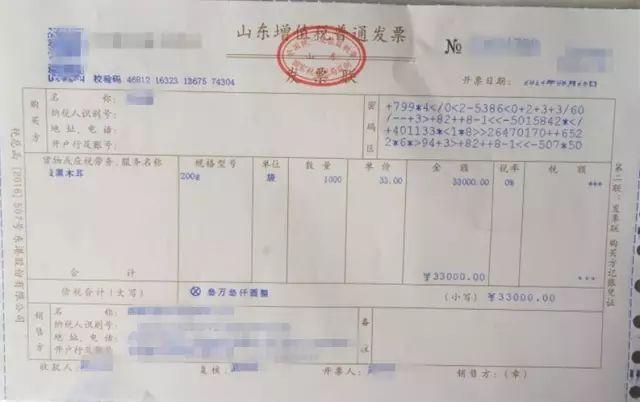 山东增值税普通发票
山东
发票联
№
校验码 46812 16323 13675 74304
开票日期:
购买方
名 称:
纳税人识别号:
地址、电话:
开户行及账号:
密码区
+799*4</0<2-5386<0+2+3+3/60
/--+3>+82++8-1<<-5015842*</
+401133*<1*8>>26470170++652
2*6*>94+3>+82++8-1<<-507*50
货物或应税劳务、服务名称 规格型号 单位 数量 单价 金额 税率 税额
黑木耳 200g 袋 1000 33.00 33000.00 0% ***
合计 ¥33000.00 ***
价税合计(大写) ⊗ 叁万叁仟圆整 (小写) ¥33000.00
销售方
名 称:
纳税人识别号:
地址、电话:
开户行及账号:
备注
收款人: 复核: 开票人: 销售方:(章)
税总函〔2016〕507号东港股份有限公司
第二联:发票联 购买方记账凭证